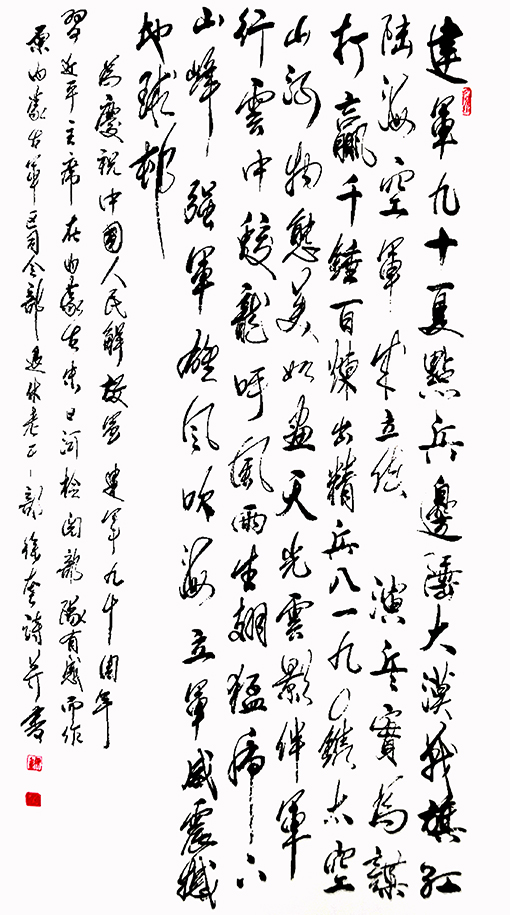 建軍九十夏點兵邊陲大漠戰旗紅
陸海空軍成立後演兵實為謀
打贏千錘百煉出精兵八一九〇太空
山河物態美如畫天光雲影伴軍
行雲中蛟龍呼風雨生翅猛虎下
山峰強軍雄風吹海立軍威震撼
地球村
為慶祝中國人民解放軍建軍九十周年
習近平主席在內蒙古朱日河檢閱隊有感而作
原內蒙古軍區司令部退休老部徐奎詩并書